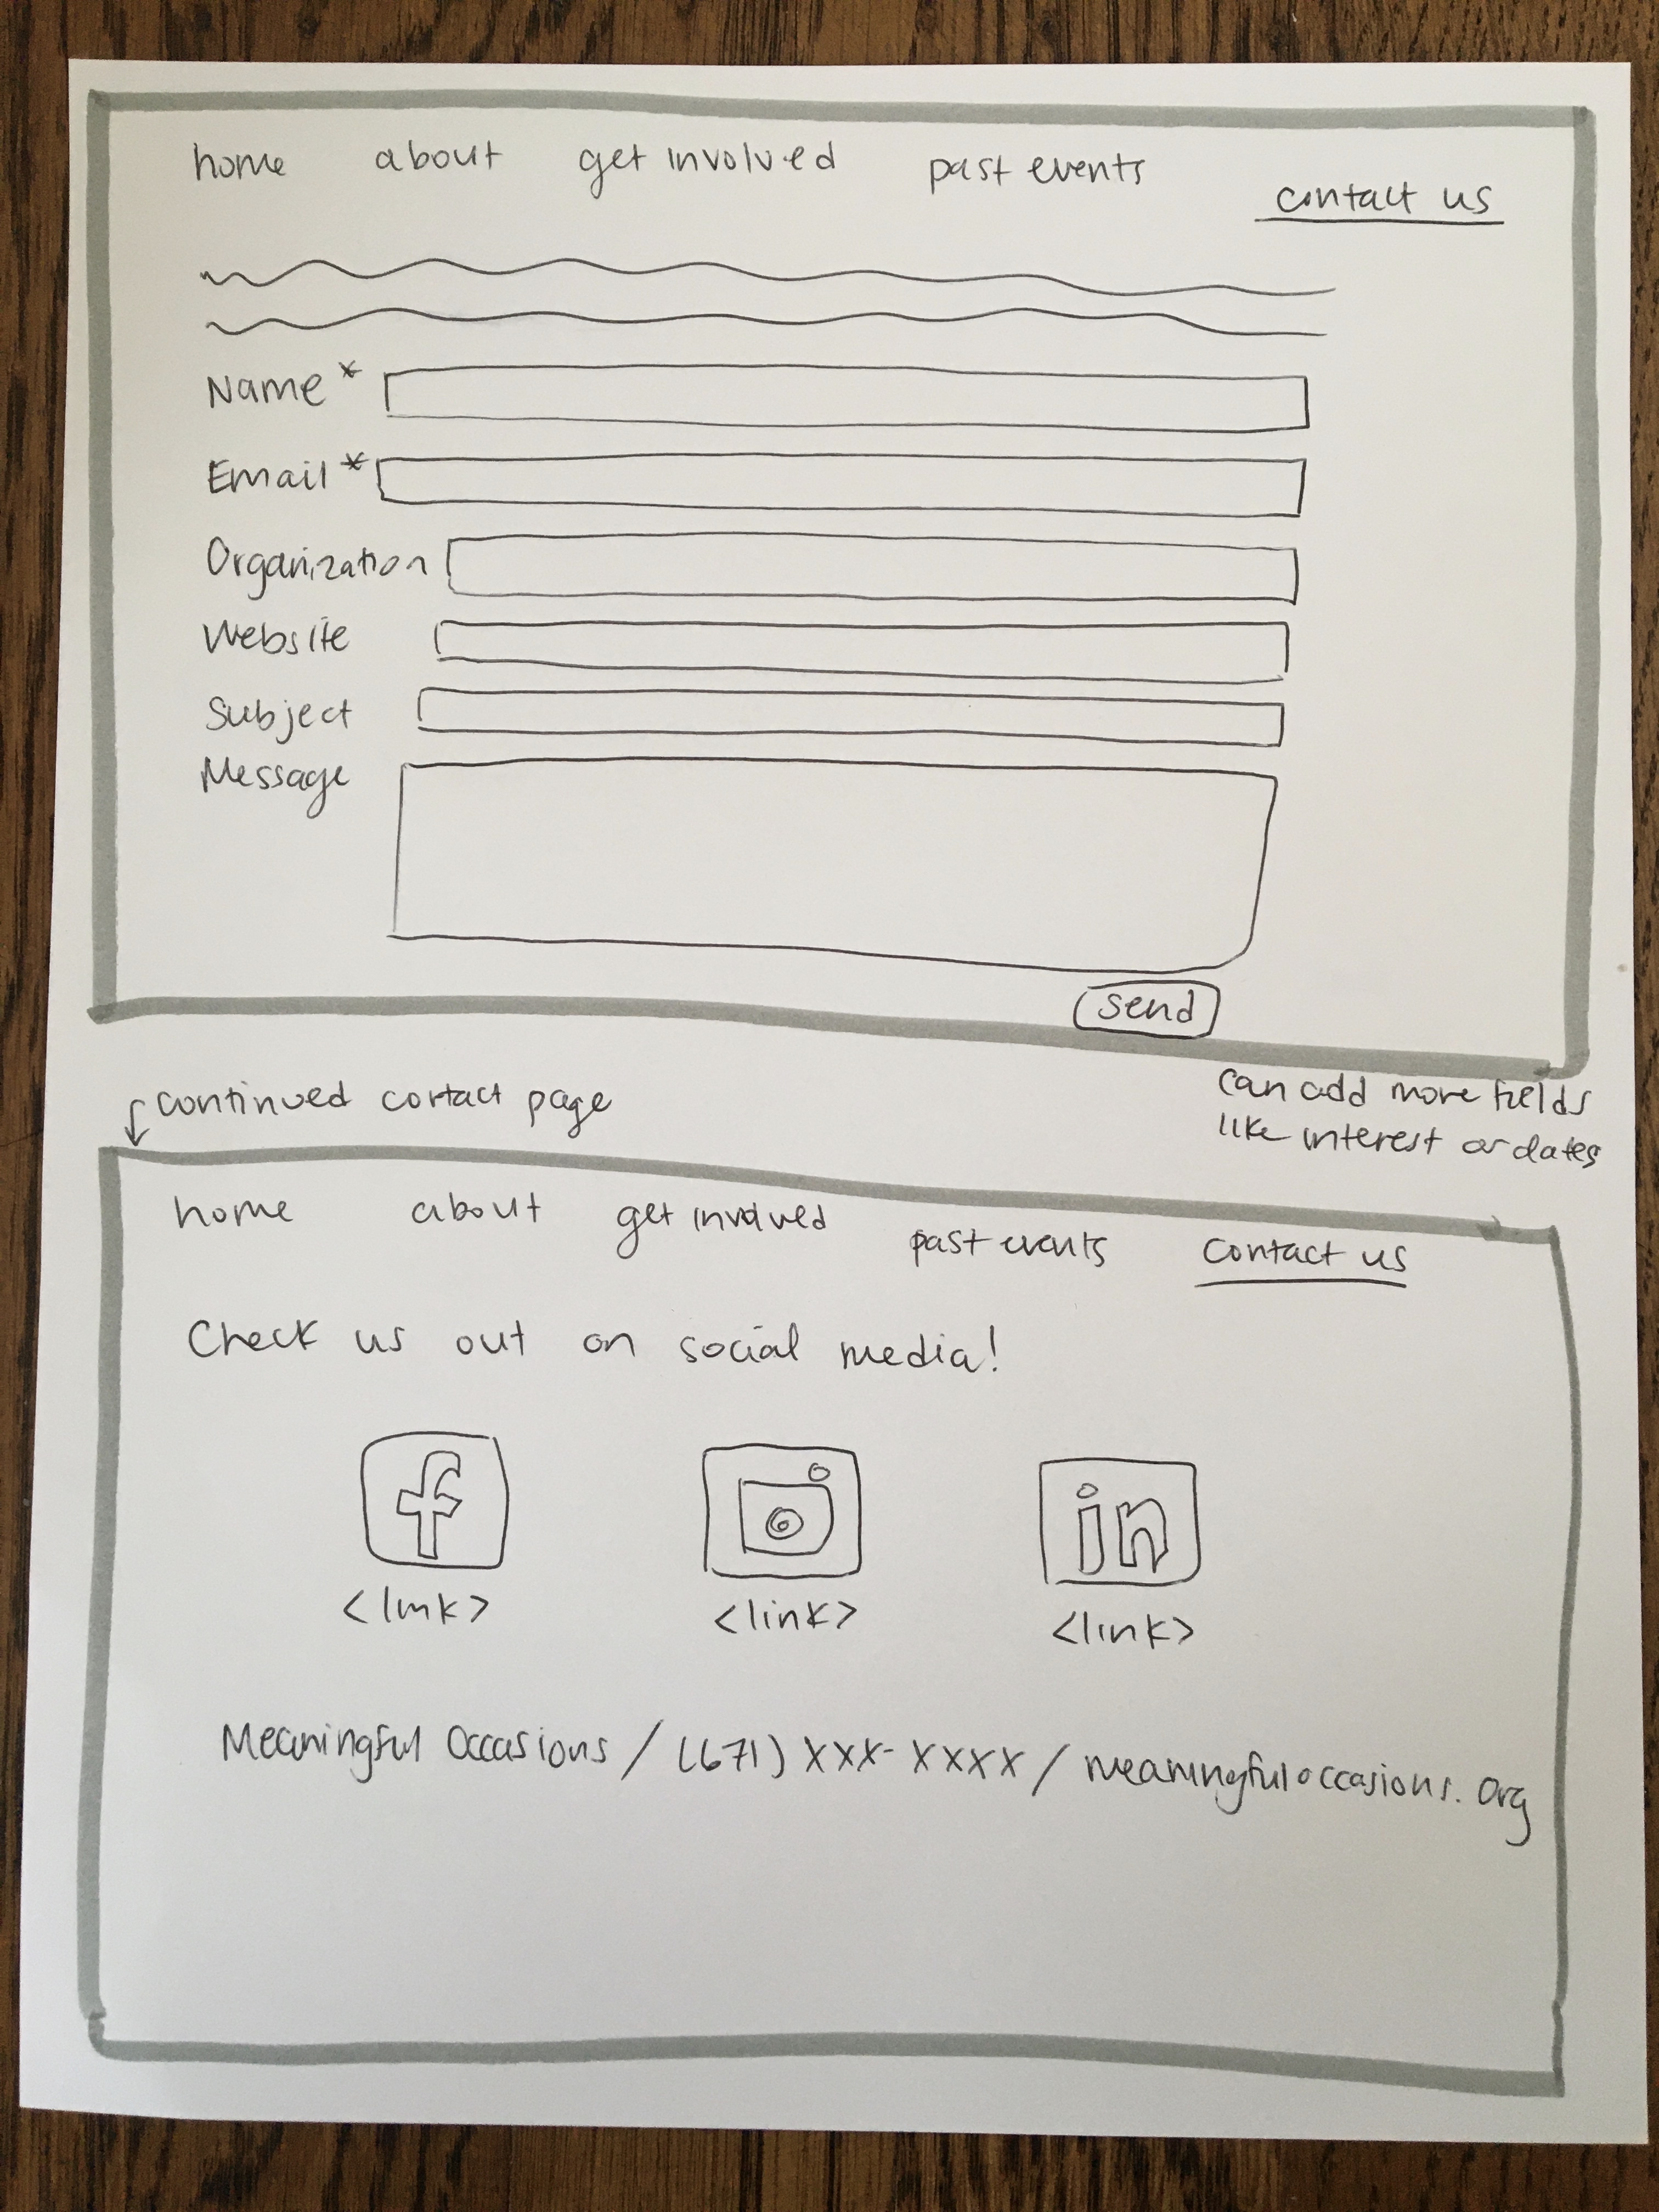 home about get involved past events contact us
Name *
Email *
Organization
Website
Subject
Message
send
continued contact page
can add more fields
like interest or dates
home about get involved past events contact us
Check us out on social media!
f in
<link> <link> <link>
Meaningful Occasions / (671) XXX-XXXX / meaningfuloccasions.org